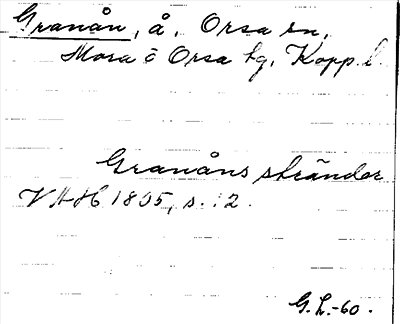 Granån, å. Orsa sn,
Mora o Orsa tg, Kopp. l.
Granåns stränder
VAH 1805, s. 12.
G. L. -60.